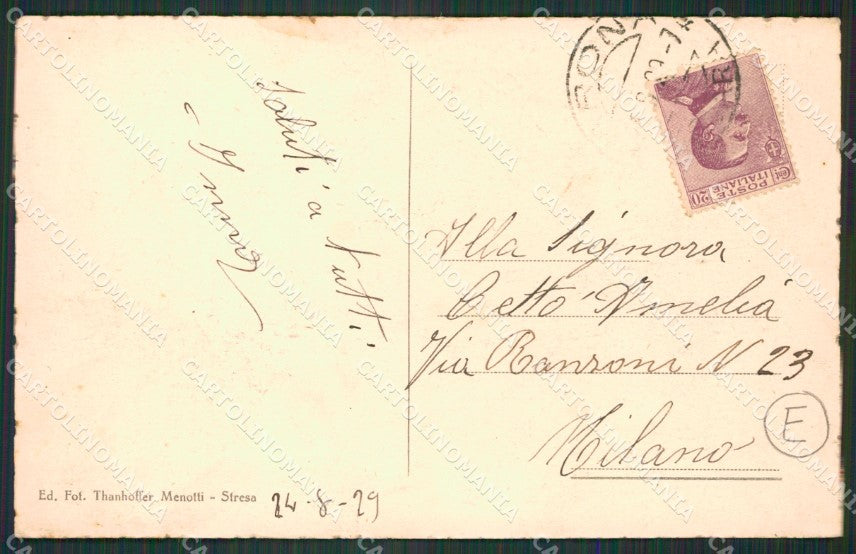 Saluti a tutti
Alla Signora
Cetto Amelia
Via Ranzoni N 23
Milano
E
Ed. Fot. Thanhoffer Menotti - Stresa
24-8-29
POSTE
ITALIANE
Cent 20
CARTOLINOMANIA